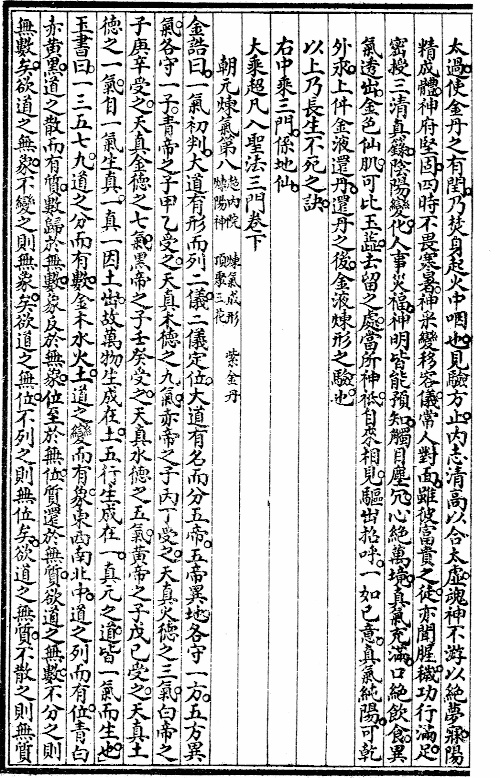 太過使金丹之有閏乃焚身起火中咽也見驗方止內志清高以合太虛魂神不游以絕夢寐陽
精成體神府堅固四時不畏寒暑神采變移容儀常人對面雖彼富貴之徒亦聞腥穢功行滿足
密授三清真籙陰陽變化人事災福神明皆能預知觸目塵冗心絕萬境真氣充滿口絕飲食異
氣透出金色仙肌可比玉蕋去留之處當所神祇自來相見驅出招呼一如己意真氣純陽可乾
外汞上件金液還丹還丹之後金液煉形之驗也
以上乃長生不死之訣
右中乘三門係地仙
大乘超凡入聖法三門卷下
朝元煉氣第八 超內院 煉氣成形 紫金丹
煉陽神 頂聚三花
金誥曰一氣初判大道有形而列二儀二儀定位大道有名而分五帝五帝異地各守一方五方異
氣各守一子青帝之子甲乙受之天真木德之九氣赤帝之子丙丁受之天真火德之三氣白帝之
子庚辛受之天真金德之七氣黑帝之子壬癸受之天真水德之五氣黃帝之子戊己受之天真土
德之一氣自一氣生真一真一因土出故萬物生成在土五行生成在一真元之道皆一氣而生也
玉書曰一三五七九道之分而有數金木水火土道之變而有象東西南北中道之列而有位青白
赤黃黑道之散而有質數歸於無數象反於無象位至於無位質還於無質欲道之無數不分之則
無數矣欲道之無象不變之則無象矣欲道之無位不列之則無位矣欲道之無質不散之則無質